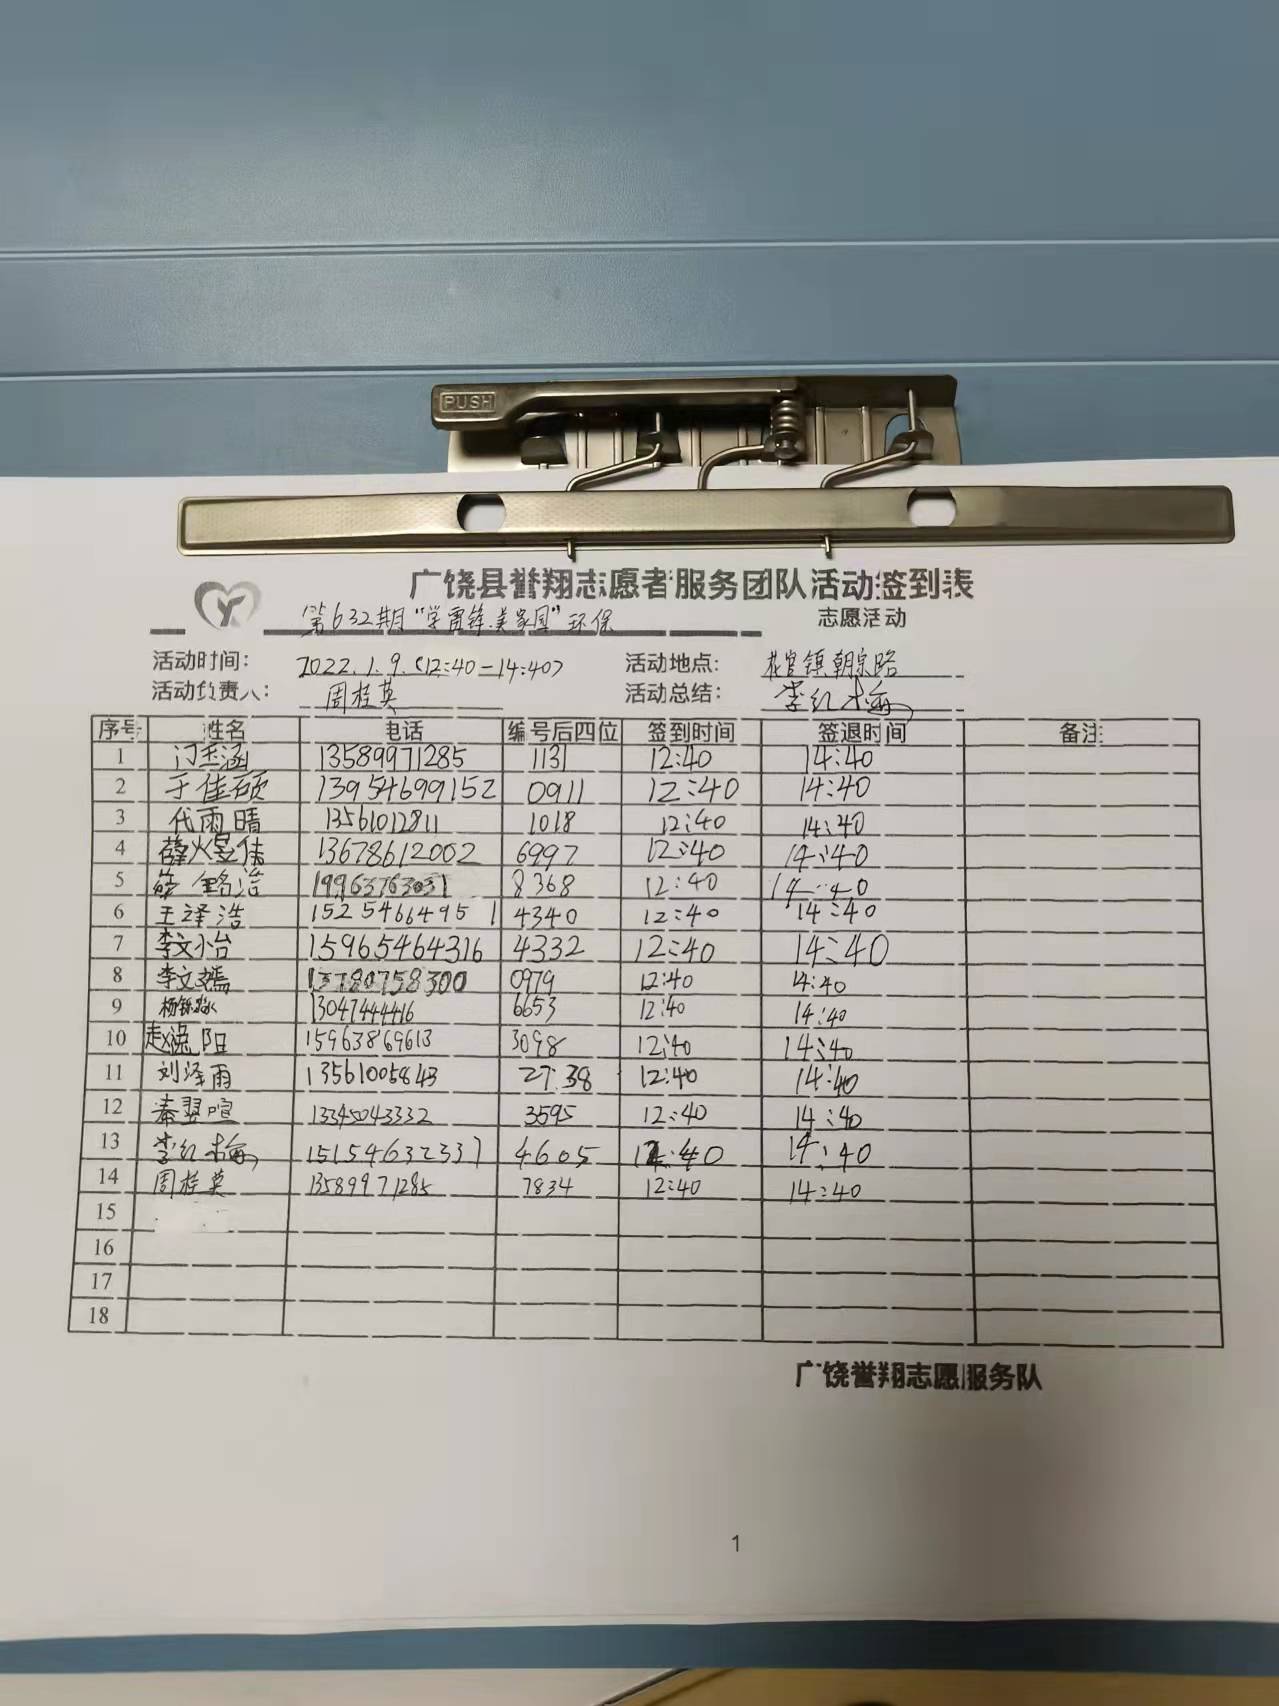 PUSH
广饶县誉翔志愿者服务团队活动签到表
第632期“学雷锋.美家园”环保 志愿活动
活动时间: 2022.1.9.(12:40-14:40) 活动地点: 花官镇朝宗路
活动负责人: 周桂英 活动总结: 李红梅
序号 姓名 电话 编号后四位 签到时间 签退时间 备注
1 门玉涵 13589971285 1131 12:40 14:40
2 于佳硕 13954699152 0911 12:40 14:40
3 代雨晴 13561012811 1018 12:40 14:40
4 薛煜佳 13678612002 6997 12:40 14:40
5 铭浩 19963763031 8368 12:40 14:40
6 王译浩 15254664951 4340 12:40 14:40
7 李文怡 15965464316 4332 12:40 14:40
8 李文嫣 300 0979 12:40 14:40
9 杨 13047444416 6653 12:40 14:40
10 赵逸阳 15963869613 3098 12:40 14:40
11 刘泽雨 13561005843 27:38 12:40 14:40
12 秦翌喧 13345043332 3595 12:40 14:40
13 李红梅 15154632337 4605 12:40 14:40
14 周桂英 13589971285 7834 12:40 14:40
15
16
17
18
广饶誉翔志愿服务队
1